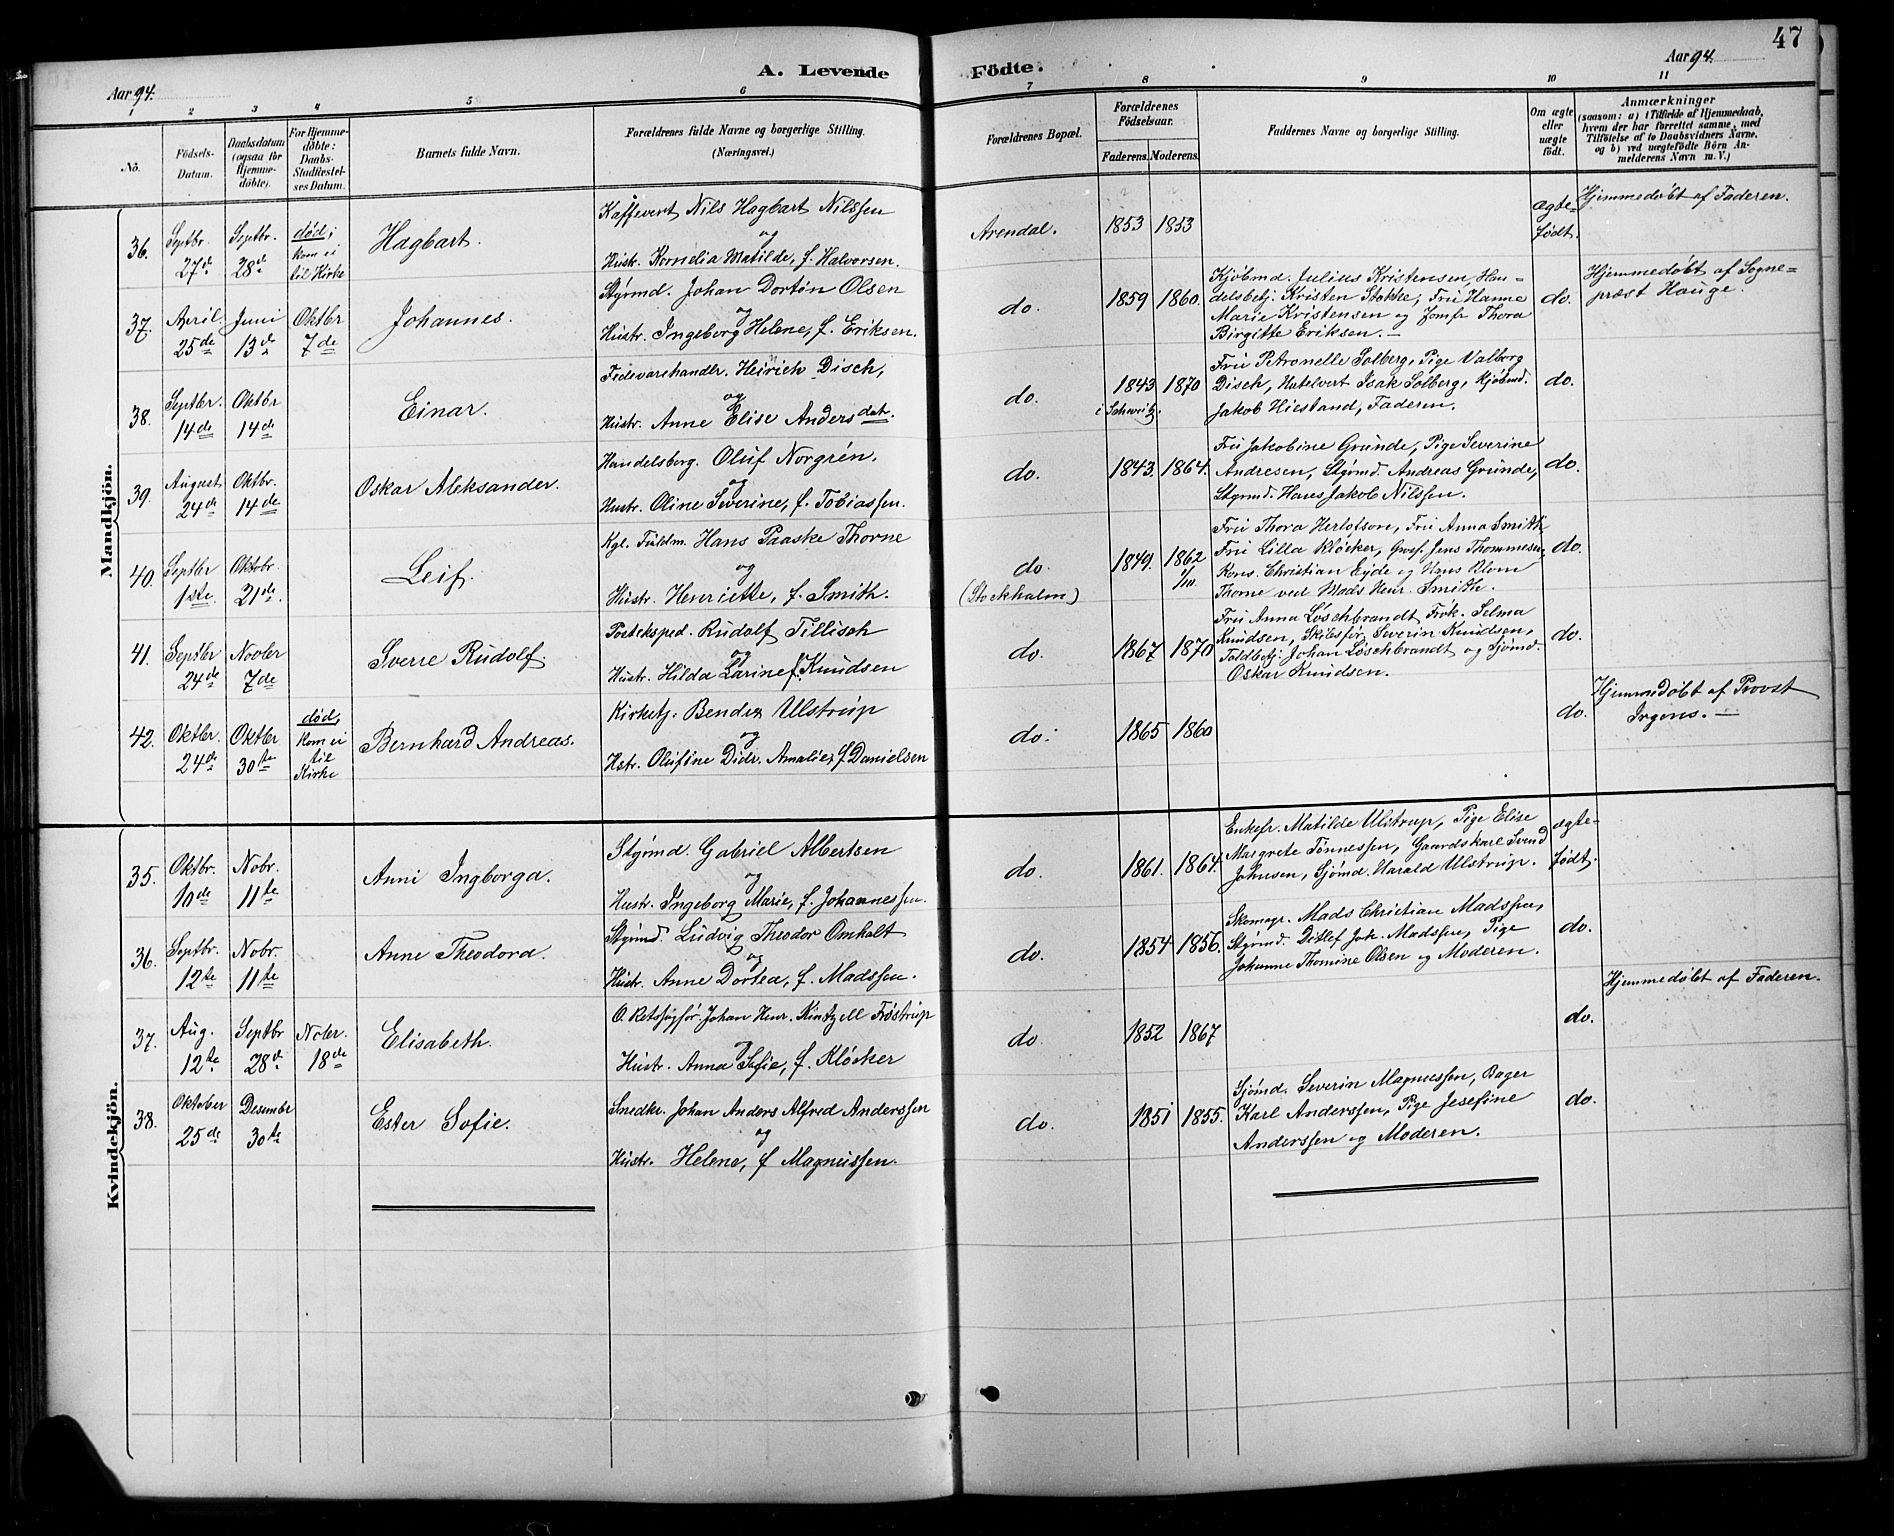 47
A. Levende Födte.
Aar 94.
Aar 94.
1 2 3 4 5 6 7 8 9 10 11
No.
Födsels-Datum.
Daabsdatum (ogsaa for Hjemmedöbte).
For Hjemmedöbte: Daabs-Stadfestelses Datum.
Barnets fulde Navn.
Forældrenes fulde Navne og borgerlige Stilling. (Næringsvei.)
Forældrenes Bopæl.
Forældrenes Födselsaar.
Faderens. Moderens.
Faddernes Navne og borgerlige Stilling.
Om ægte eller uægte födt.
Anmærkninger
(saasom: a) i Tilfælde af Hjemmedaab, hvem der har forrettet samme, med Tilföielse af to Daabsvidners Navne, og b) ved uægtefödte Börn Anmelderens Navn m. V.)
Mandkjön.
36. Septbr. 27de Septbr. 28de død; kom ei til Kirke
Hagbart.
Kaffevert Nils Hagbart Nilssen
og
Hustr. Kornelia Matilde, f. Halvorsen.
Arendal. 1853 1853
ægte-født.
Hjemmedøbt af Faderen.
37. April 25de Juni 13de Oktbr 7de
Johannes.
Styrmd. Johan Dorton Olsen
og
Hustr. Ingeborg Helene, f. Eriksen.
do. 1859 1860.
Kjøbmd. Julius Kristensen, Han-
delsbetj. Kristen Stokke, Fru Hanne
Marie Kristensen og Jomfr Thora
Birgitte Eriksen.—
do.
Hjemmedøbt af Sogne-
præst Hauge.
38. Septbr. 14de Oktbr 14de
Einar.
Fedevarehandlr. Heinrich Disch,
og
Hustr. Anne Elise Andersdat.
do. 1843 i Schweitz. 1870
Fru Petronelle Solberg, Pige Valborg
Disch, Hotelvert Isak Solberg, Kjøbmd.
Jakob Hiestand, Faderen.
do.
39. August 24de Oktbr. 14de
Oskar Aleksander.
Handelsborg. Oluf Norgrén.
og
Hustr. Oline Severine, f. Tobiassen.
do. 1843. 1864.
Fru Jakobine Grunde, Pige Severine
Andresen, Styrmd. Andreas Grunde,
Styrmd. Hans Jakob Nilssen.
do.
40. Septbr 1ste Oktobr. 21de
Leif.
Kgl. Fuldm. Hans Paaske Thorne
og
Hustr. Henriette, f. Smith.
do. (Stockholm) 1849. 1862 1/10.
Fru Thora Herlofson, Fru Anna Smith
Fru Lilla Kløcker, Gros. Jens Thommesen,
Kons. Christian Eyde og Hans Blom
Thorne ved Mads Henr. Smith.
do.
41. Septbr 24de Novbr 7de
Sverre Rudolf.
Posteksped. Rudolf Tillisch
og
Hustr. Hilda Larine f. Knudsen
do. 1867 1870
Fru Anna Løschbrandt Frøk. Selma
Knudsen, Skibsfør. Severin Knudsen,
Toldbetj. Johan Løschbrandt og Sjømd.
Oskar Knudsen.
do.
42. Oktbr. 24de Oktbr 30te død, kom ei til Kirke
Bernhard Andreas.
Kirketj. Bendix Ulstrup
og
Hstr. Olufine Didr. Amalie, f. Danielsen
do. 1865 1860
do.
Hjemmedøbt af Provst
Irgens.—
Kvindekjön.
35. Oktbr. 10de Nobr. 11te
Anni Ingborga.
Styrmd. Gabriel Albertsen
og
Hustr. Ingeborg Marie, f. Johannessen.
do. 1861. 1864.
Enkefr. Matilde Ulstrup, Pige Elise
Margrete Tønnessen, Gaardskarl Svend
Johnsen, Sjømd. Harald Ulstrup.
ægte-født.
36. Septbr. 12te Nobr. 11te
Anne Theodora.
Styrmd. Ludvig Theodor Omholt
og
Hustr. Anne Dortea, f. Madssen.
do. 1854 1856.
Skomagr. Mads Christian Madssen,
Styrmd. Ditlef Joh. Madssen, Pige
Johanne Thomine Olsen og Moderen.
do.
37. Aug. 12te Septbr 28de Novbr. 18de
Elisabeth.
O. Retssagfør. Johan Henr. Kintzell Frøstrup
og
Hustr. Anna Sofie, f. Kløcker
do. 1852 1867
do.
Hjemmedøbt af Faderen.
38. Oktober 25de Desembr 30te
Ester Sofie.
Snedkr. Johan Anders Alfred Anderssen
og
Hustr. Helene, f Magnussen.
do. 1851 1855.
Sjømd. Severin Magnussen, Bager
Karl Anderssen, Pige Josefine
Anderssen og Moderen.
do.